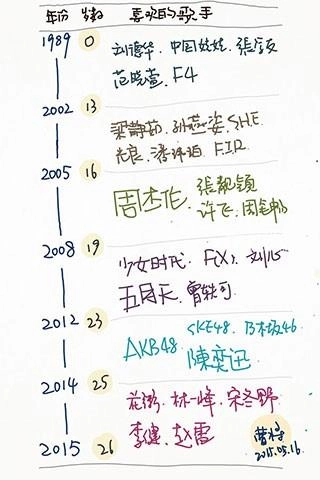 年份 岁数 喜欢的歌手
1989 0 刘德华、中国娃娃、張
范晓萱、F4
2002 13 梁静茹、孙燕姿、SHE、
光良、潘玮柏、F.I.R
2005 16 周杰伦、張靓颖
许飞、周笔畅
2008 19 少女时代、F(X)、刘
五月天、曾轶可
2012 23 SKE48、乃木坂46
AKB48 陳奕迅
2014 25 花粥、林一峰、宋冬野
2015 26 李健、赵雷
2015.05.16